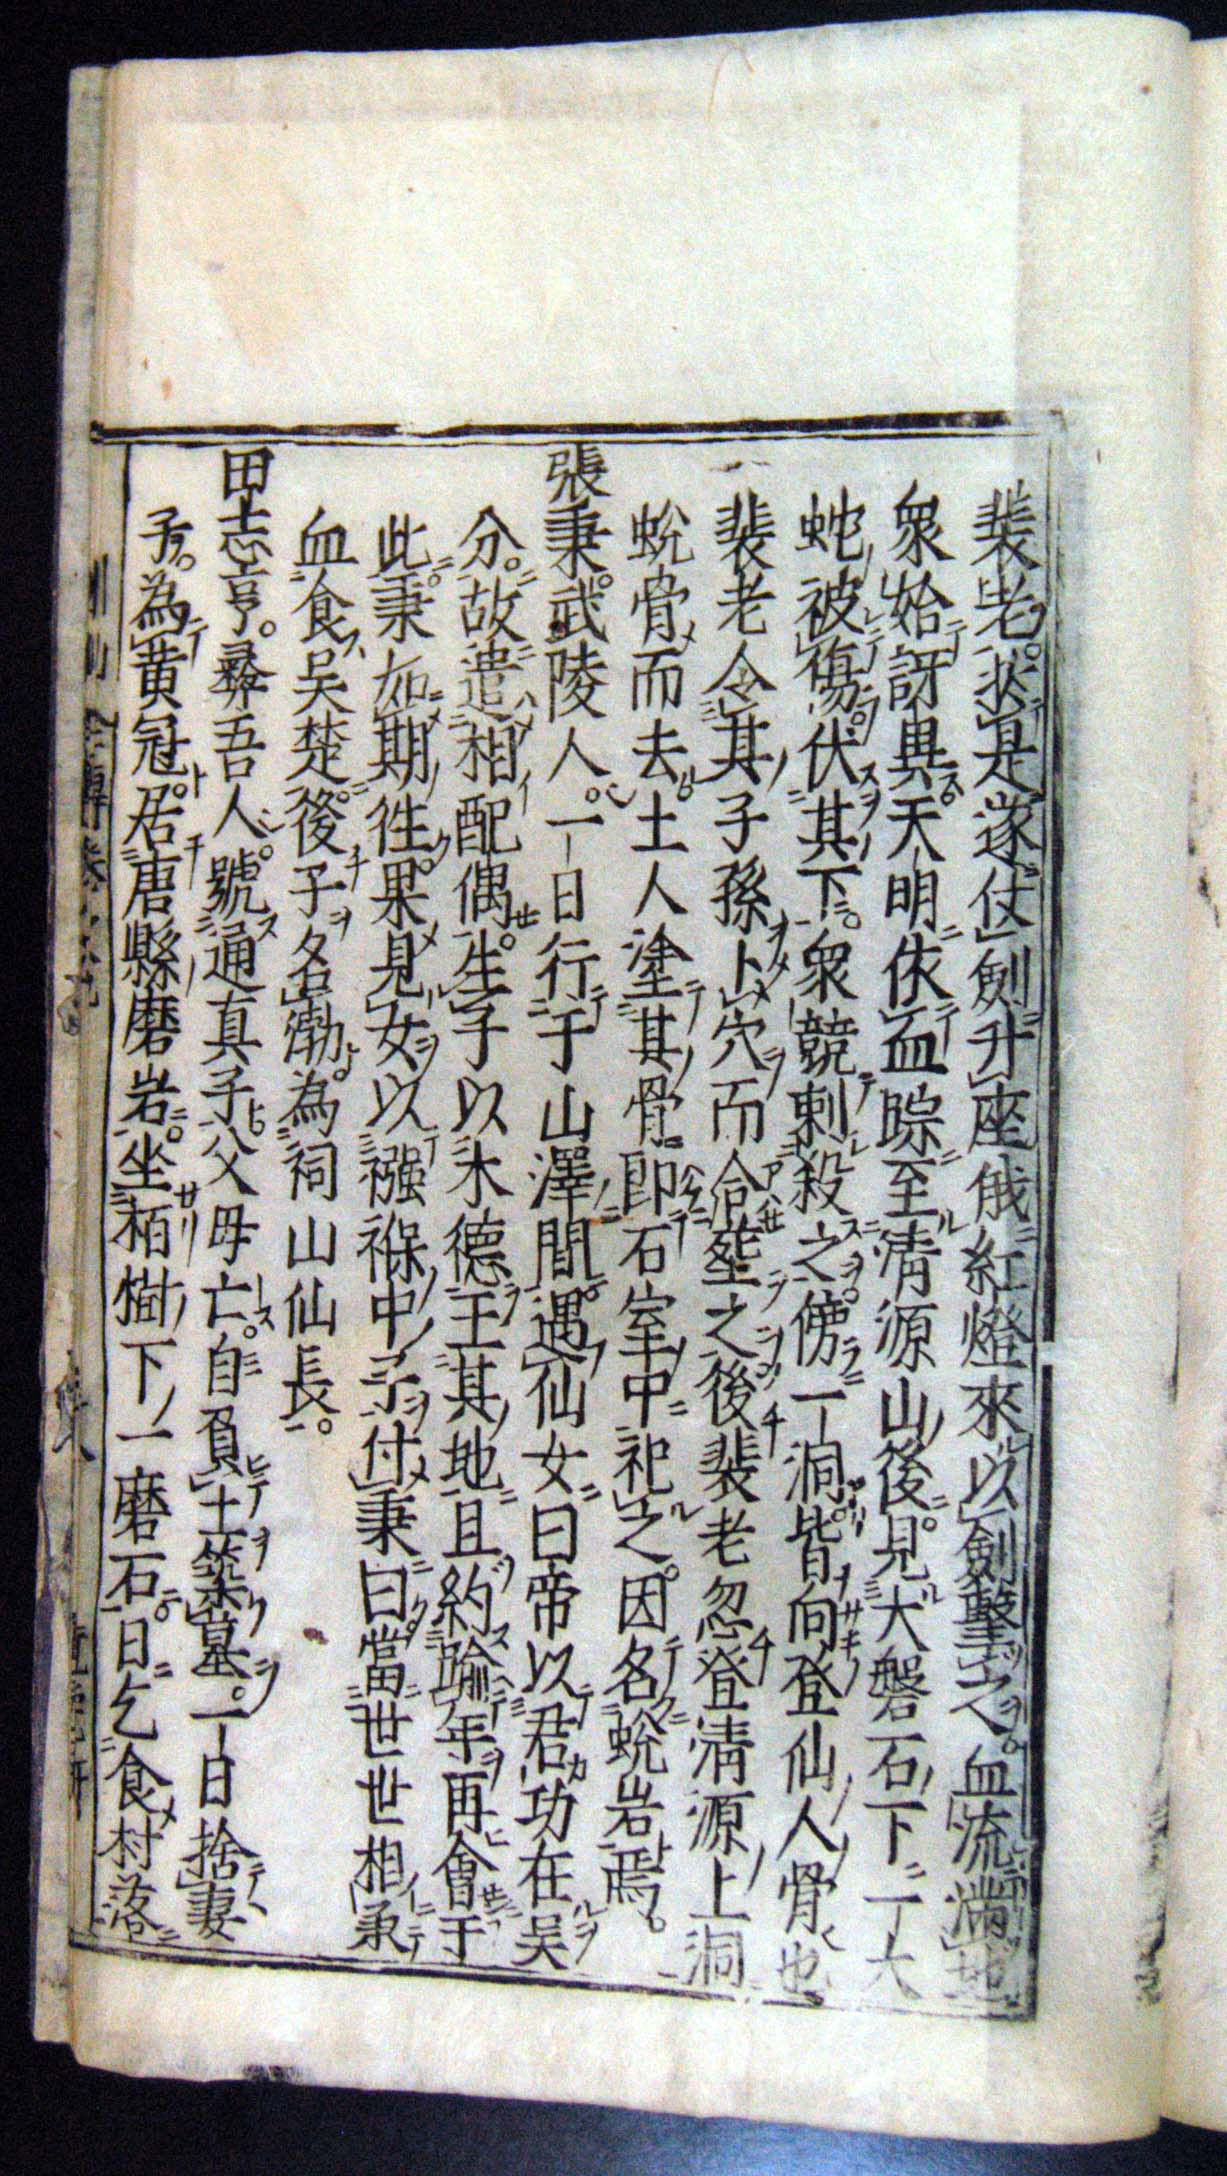 裴老状是遂仗劍升座俄紅燈來以劍擊之血流滿地
衆始訝異天明依血踪至清源山後見大磐石下一大
蛇被傷伏其下衆競剌殺之傍一洞皆向登仙人骨也
裴老令其子孫卜穴而合塟之後裴老忽登清源上洞
蛻骨而去土人塗其骨即石室中祀之因名蛻岩焉
張秉武陵人一日行于山澤間遇仙女曰帝以君功在吳
分故遣相配偶生子以木德王其地且約踰年再會于
此秉如期徃果見女以襁褓中子付秉曰當世世相承
血食吳楚後子名渤為祠山仙長
田志亨彜吾人號通真子父母亡自負土築墓一日捨妻
子為黄冠居唐縣磨岩坐栢樹下一磨石日乞食村落